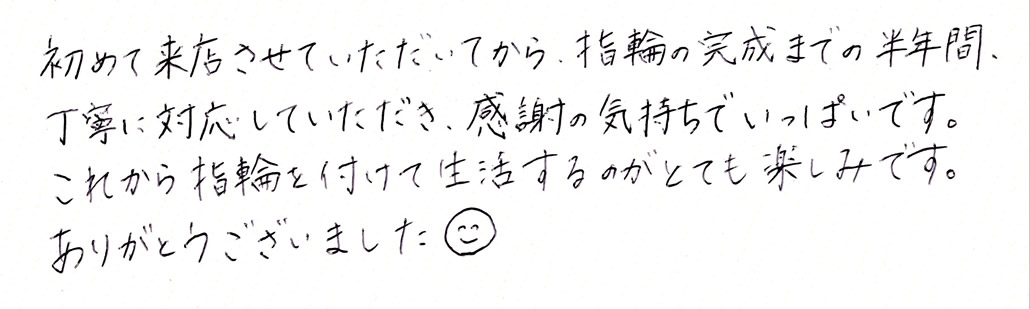 初めて来店させていただいてから、指輪の完成までの半年間、
丁寧に対応していただき、感謝の気持ちでいっぱいです。
これから指輪を付けて生活するのがとても楽しみです。
ありがとうございました